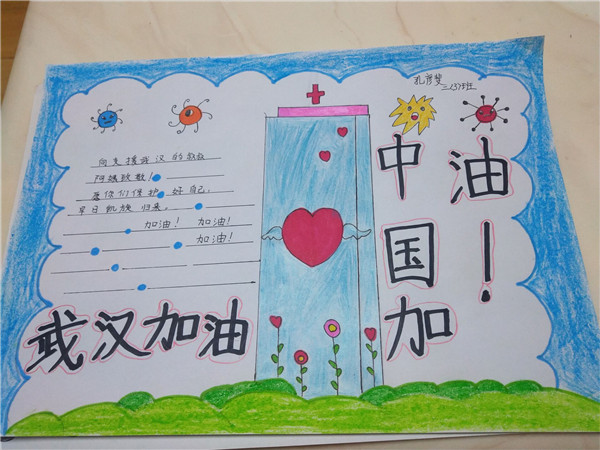 三(3)班
向支援武汉的叔叔
阿姨致敬!
愿你们保护好自己,
早日凯旋归来。
加油! 加油!
加油!
武汉加油
中国加油!